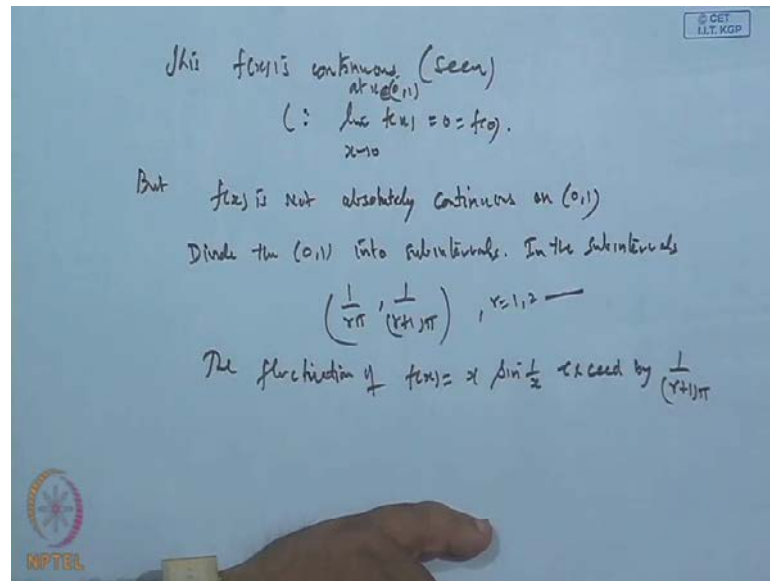 © CET
I.I.T. KGP
This f(x) is continuous (seen)
at x ∈ (0,1)
(∵ lim f(x) = 0 = f(0).
x→0
But f(x) is not absolutely continuous on (0,1)
Divide the (0,1) into subintervals. In the subintervals
(1/rπ , 1/(r+1)π) , r=1,2 —
The fluctuation of f(x) = x sin 1/x exceed by 1/(r+1)π
NPTEL